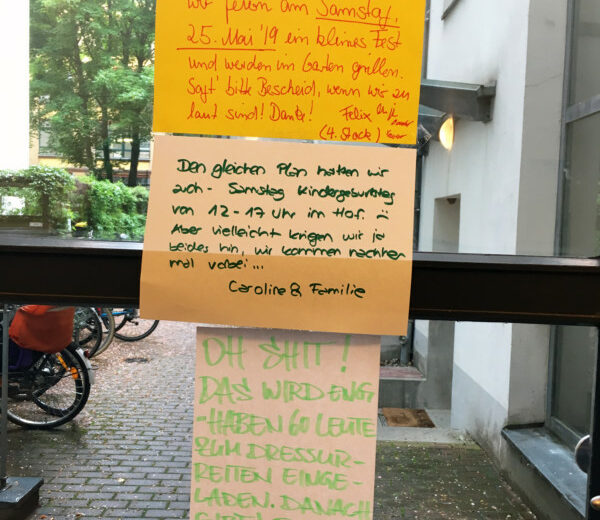 wir feiern am Samstag,
25. Mai '19 ein kleines Fest
und werden im Garten grillen.
Sagt bitte Bescheid, wenn wir zu
laut sind! Danke! Felix
(4. Stock)
Den gleichen Plan hatten wir
auch - Samstag Kindergeburtstag
von 12-17 Uhr im Hof.
Aber vielleicht kriegen wir ja
beides hin, wir kommen nachher
mal vorbei...
Caroline & Familie
OH SHIT!
DAS WIRD ENG,
-HABEN 60 LEUTE
ZUM DRESSUR-
REITEN EINGE-
LADEN. DANACH